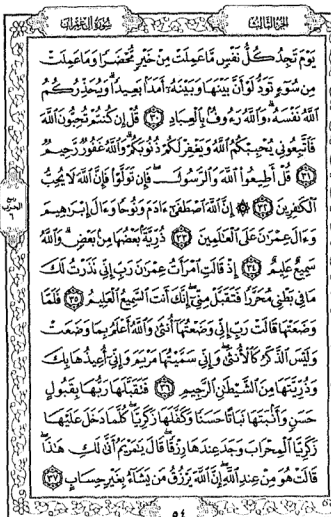 الجزء الثالث سورة آل عمران
يَوْمَ تَجِدُ كُلُّ نَفْسٍ مَّا عَمِلَتْ مِنْ خَيْرٍ مُّحْضَرًا وَمَا عَمِلَتْ
مِن سُوٓءٍ تَوَدُّ لَوْ أَنَّ بَيْنَهَا وَبَيْنَهُۥٓ أَمَدًۢا بَعِيدًا ۗ وَيُحَذِّرُكُمُ
ٱللَّهُ نَفْسَهُۥ ۗ وَٱللَّهُ رَءُوفٌۢ بِٱلْعِبَادِ ٣٠ قُلْ إِن كُنتُمْ تُحِبُّونَ ٱللَّهَ
فَٱتَّبِعُونِى يُحْبِبْكُمُ ٱللَّهُ وَيَغْفِرْ لَكُمْ ذُنُوبَكُمْ ۗ وَٱللَّهُ غَفُورٌ رَّحِيمٌ
٣١ قُلْ أَطِيعُوا۟ ٱللَّهَ وَٱلرَّسُولَ ۖ فَإِن تَوَلَّوْا۟ فَإِنَّ ٱللَّهَ لَا يُحِبُّ
ٱلْكَٰفِرِينَ ٣٢ ۞ إِنَّ ٱللَّهَ ٱصْطَفَىٰٓ ءَادَمَ وَنُوحًا وَءَالَ إِبْرَٰهِيمَ
وَءَالَ عِمْرَٰنَ عَلَى ٱلْعَٰلَمِينَ ٣٣ ذُرِّيَّةًۢ بَعْضُهَا مِنۢ بَعْضٍ ۗ وَٱللَّهُ
سَمِيعٌ عَلِيمٌ ٣٤ إِذْ قَالَتِ ٱمْرَأَتُ عِمْرَٰنَ رَبِّ إِنِّى نَذَرْتُ لَكَ
مَا فِى بَطْنِى مُحَرَّرًا فَتَقَبَّلْ مِنِّىٓ ۖ إِنَّكَ أَنتَ ٱلسَّمِيعُ ٱلْعَلِيمُ ٣٥ فَلَمَّا
وَضَعَتْهَا قَالَتْ رَبِّ إِنِّى وَضَعْتُهَآ أُنثَىٰ وَٱللَّهُ أَعْلَمُ بِمَا وَضَعَتْ
وَلَيْسَ ٱلذَّكَرُ كَٱلْأُنثَىٰ ۖ وَإِنِّى سَمَّيْتُهَا مَرْيَمَ وَإِنِّىٓ أُعِيذُهَا بِكَ
وَذُرِّيَّتَهَا مِنَ ٱلشَّيْطَٰنِ ٱلرَّجِيمِ ٣٦ فَتَقَبَّلَهَا رَبُّهَا بِقَبُولٍ
حَسَنٍ وَأَنۢبَتَهَا نَبَاتًا حَسَنًا وَكَفَّلَهَا زَكَرِيَّا ۖ كُلَّمَا دَخَلَ عَلَيْهَا
زَكَرِيَّا ٱلْمِحْرَابَ وَجَدَ عِندَهَا رِزْقًا ۖ قَالَ يَٰمَرْيَمُ أَنَّىٰ لَكِ هَٰذَا ۖ
قَالَتْ هُوَ مِنْ عِندِ ٱللَّهِ ۖ إِنَّ ٱللَّهَ يَرْزُقُ مَن يَشَآءُ بِغَيْرِ حِسَابٍ ٣٧
٥٤